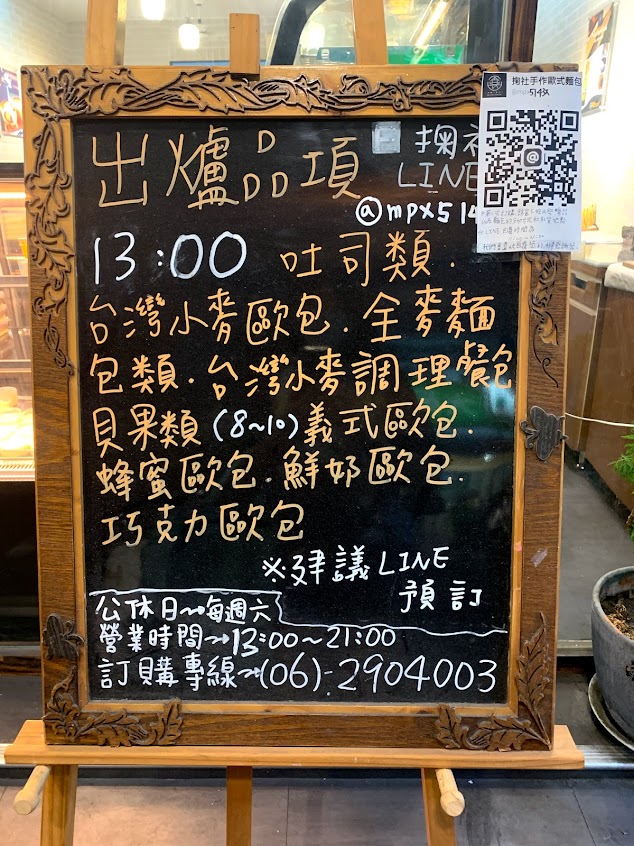 出爐品項
掬社手作歐式麵包
掬社
LINE
@mpx514
13:00 吐司類.
台灣小麥歐包.全麥麵
包類.台灣小麥調理餐包
貝果類(8~10)義式歐包.
蜂蜜歐包.鮮奶歐包.
巧克力歐包
※建議LINE
預訂
公休日~每週六
營業時間~13:00~21:00
訂購專線~(06)-2904003